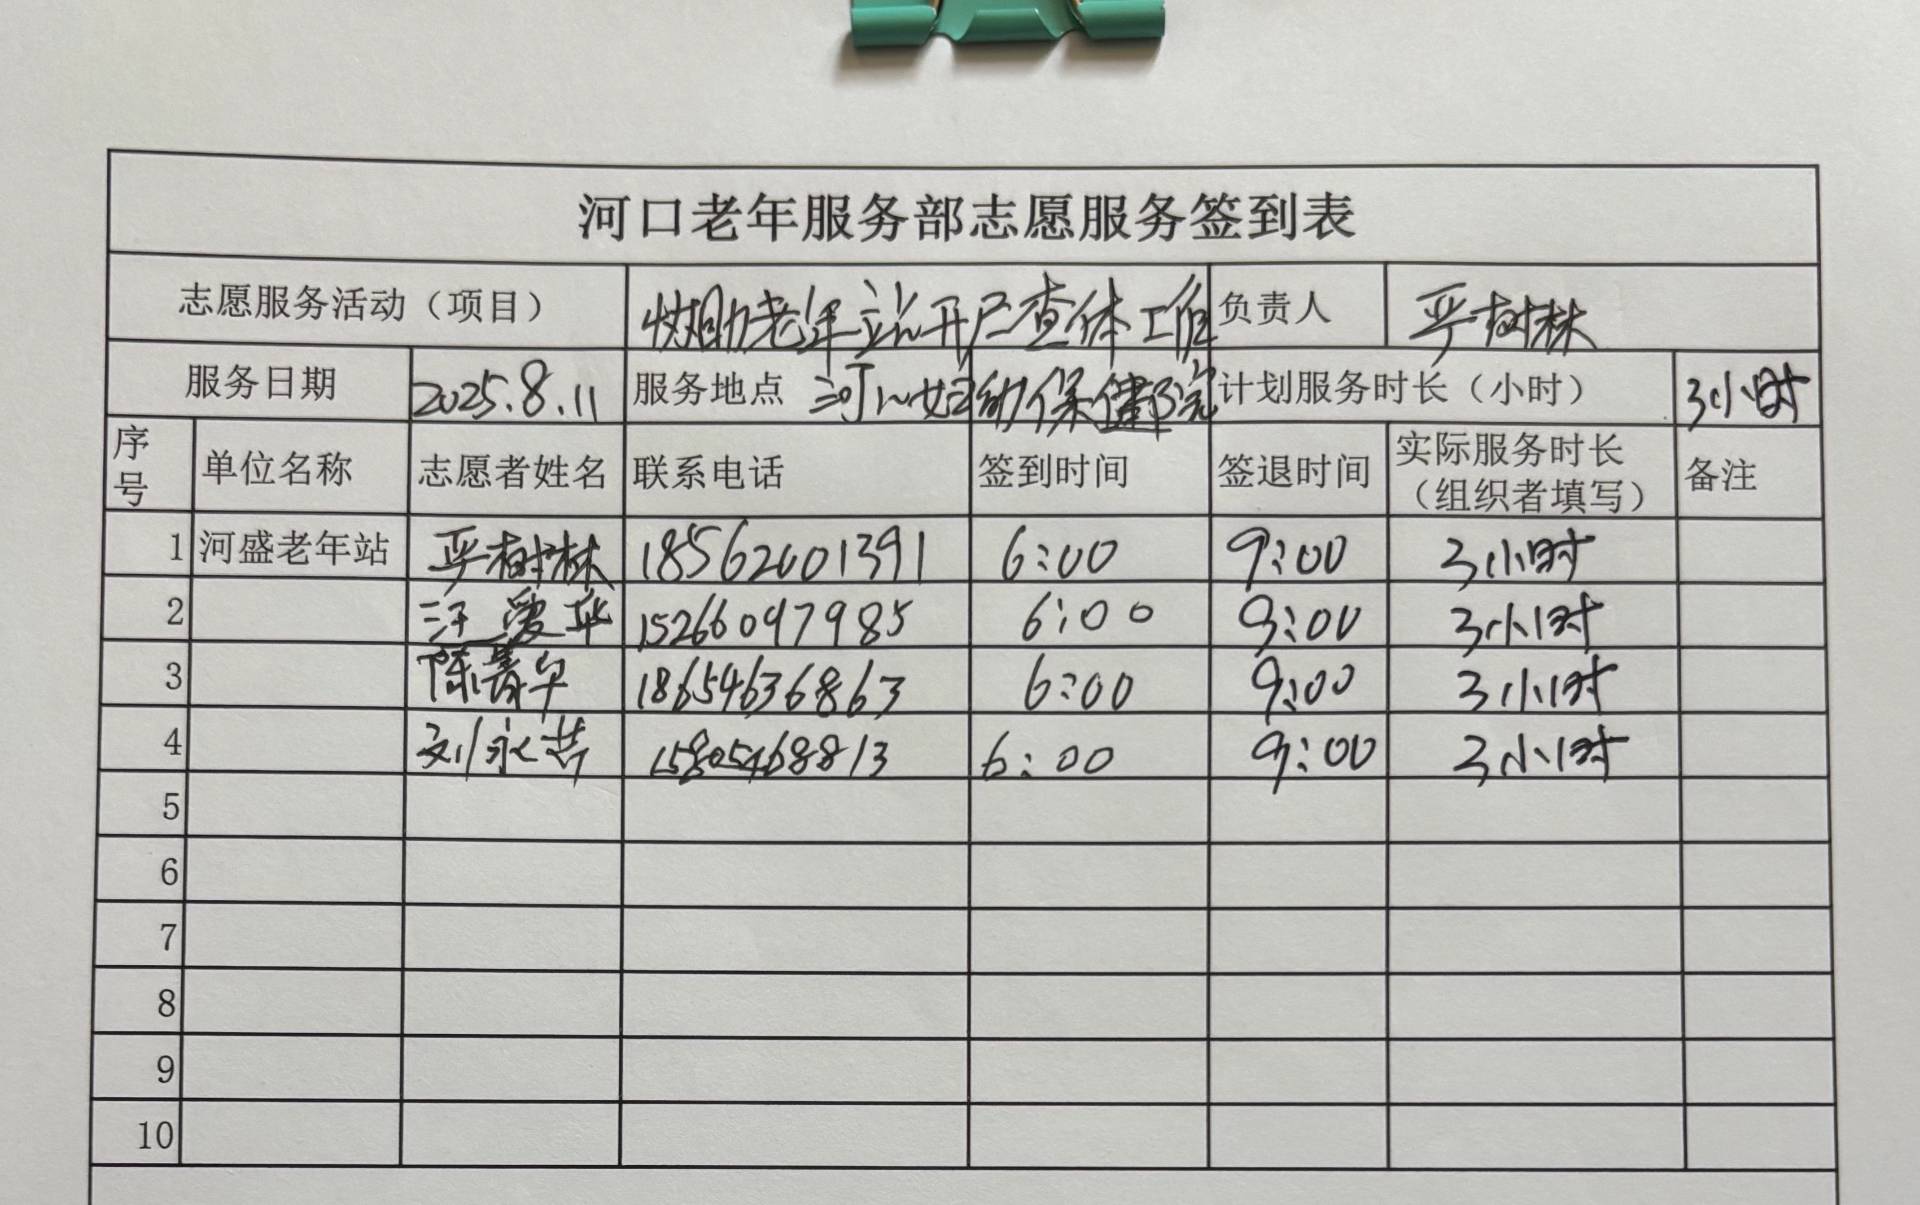 河口老年服务部志愿服务签到表
志愿服务活动（项目） 协助老年站开户查体工作 负责人 严树林
服务日期 2025.8.11 服务地点 河口妇幼保健院 计划服务时长（小时） 3小时
序号 单位名称 志愿者姓名 联系电话 签到时间 签退时间 实际服务时长（组织者填写） 备注
1 河盛老年站 严树林 18562001391 6:00 9:00 3小时
2 汪爱华 15266097985 6:00 9:00 3小时
3 陈青华 18654636863 6:00 9:00 3小时
4 刘永芸 15805468813 6:00 9:00 3小时
5
6
7
8
9
10